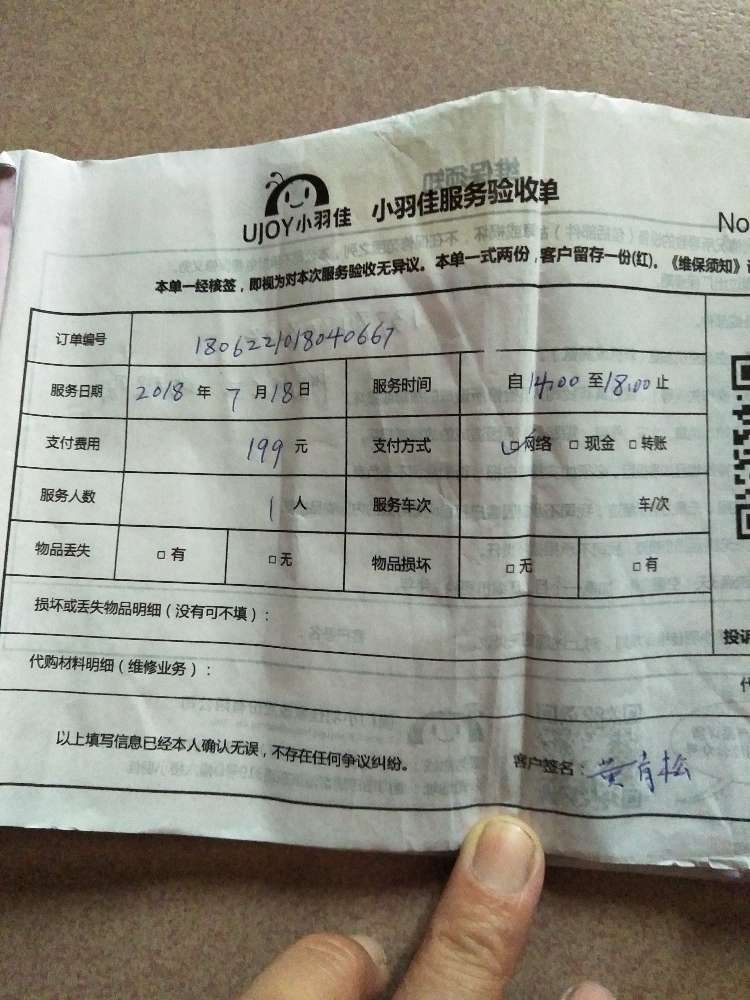 UJOY小羽佳 小羽佳服务验收单
No
本单一经核签，即视为对本次服务验收无异议。本单一式两份，客户留存一份(红)。《维保须知》
订单编号 1806221018040667
服务日期 2018 年 7 月 18 日 服务时间 自 14:00 至 18:00 止
支付费用 199 元 支付方式 ☑网络 □ 现金 □ 转账
服务人数 1 人 服务车次 车/次
物品丢失 □ 有 □ 无 物品损坏 □ 无 □ 有
损坏或丢失物品明细（没有可不填）：
投诉
代购材料明细（维修业务）：
以上填写信息已经本人确认无误，不存在任何争议纠纷。 客户签名：黄育松